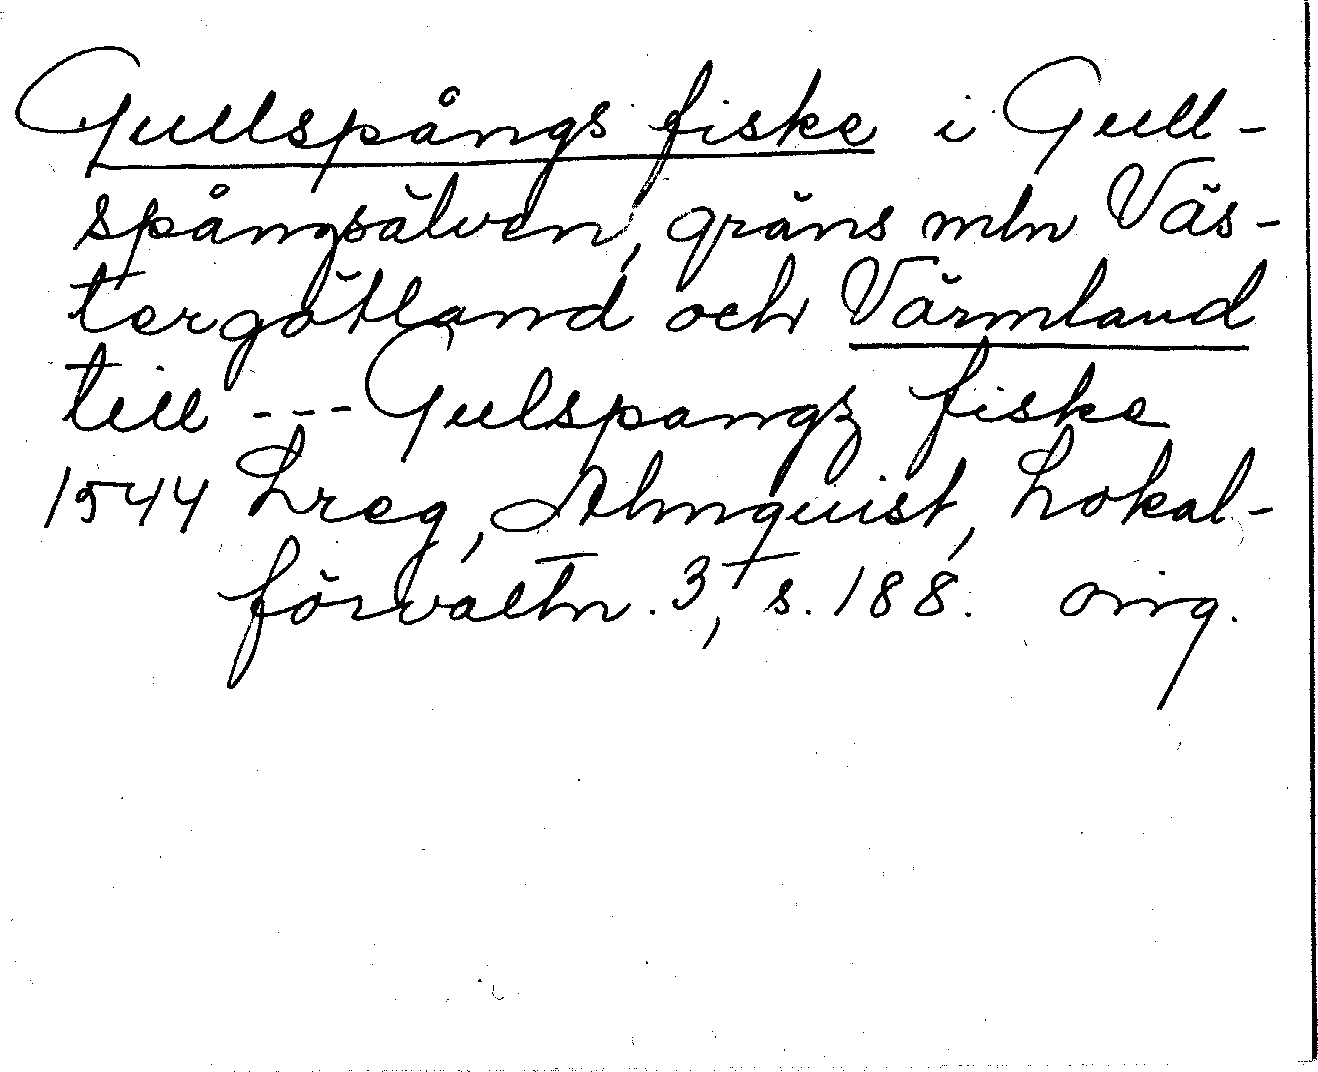 Gullspångs fiske i Gull-
spångsälven, gräns mln Väs-
tergötland och Värmland
till --- Gulspangz fiske
1544 Lreg, Almquist, Lokal-
förvaltn. 3, s. 188. oing.